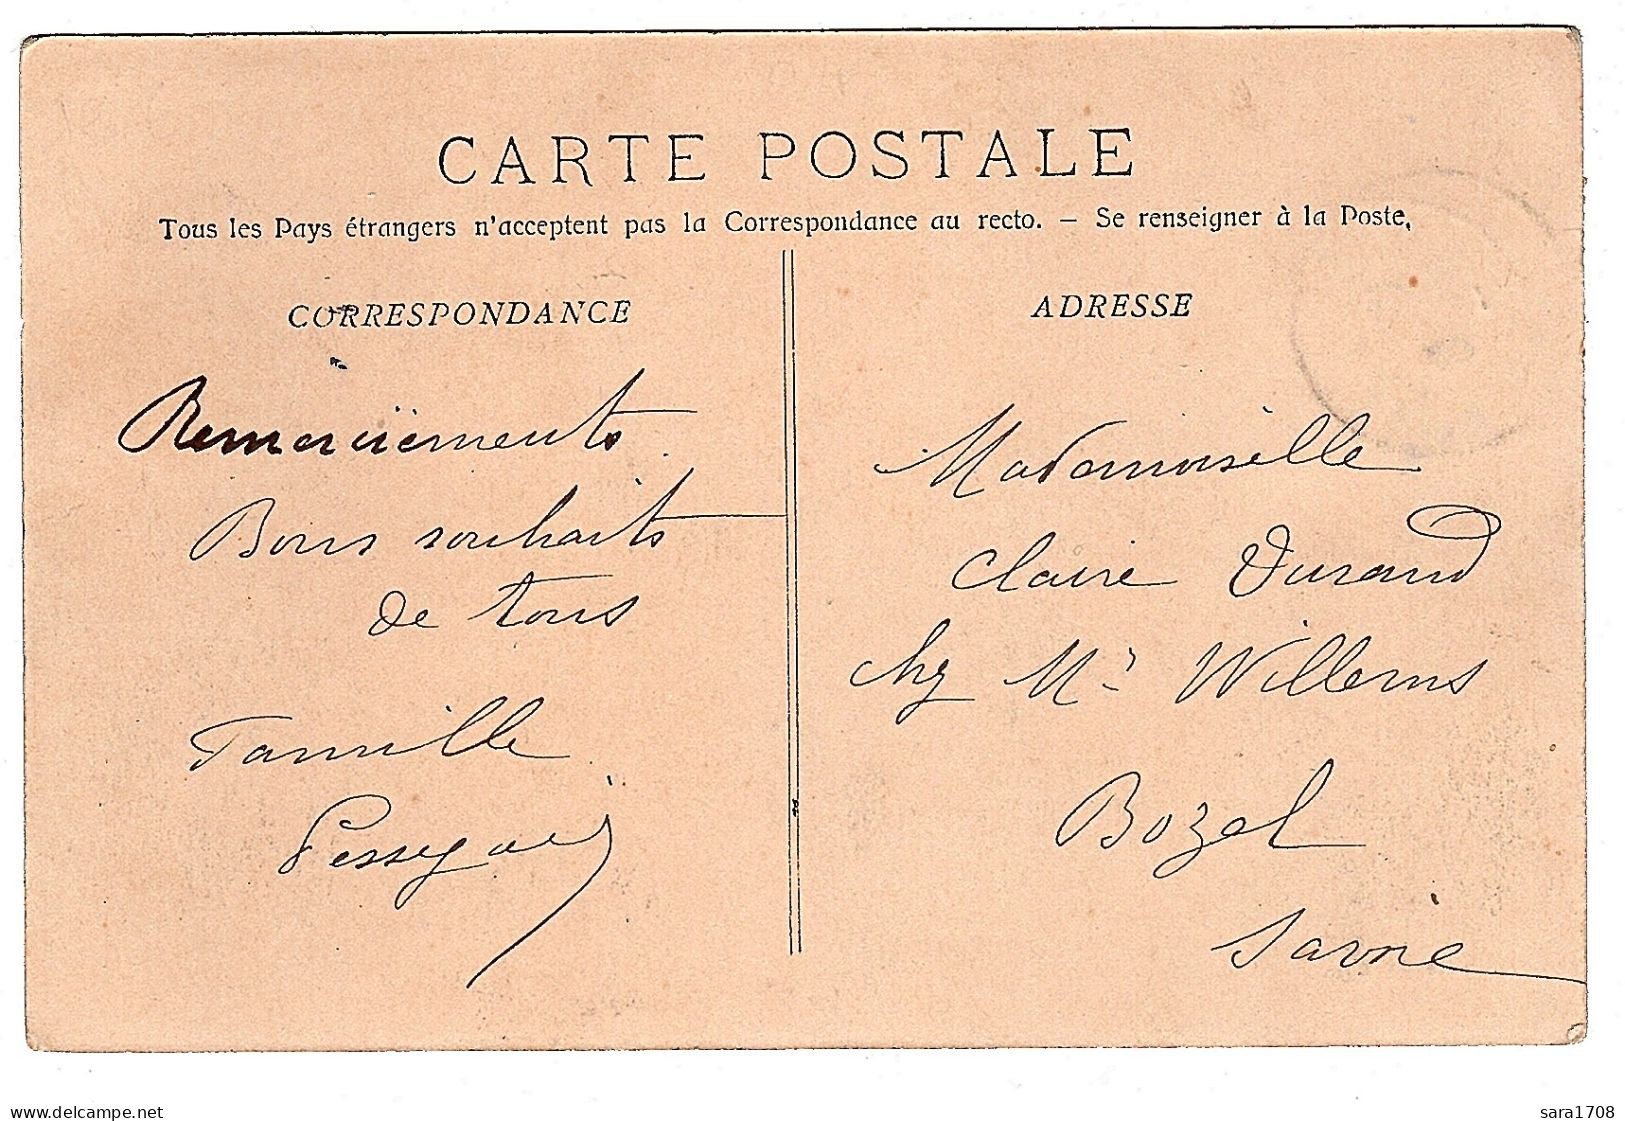 CARTE POSTALE
Tous les Pays étrangers n'acceptent pas la Correspondance au recto. – Se renseigner à la Poste.
CORRESPONDANCE
Remerciements
Bons souhaits
de tous
Famille
ADRESSE
Mademoiselle
Claire Durand
chez Mr Willems
Bozel
Savoie
delcampe.net
sara1708